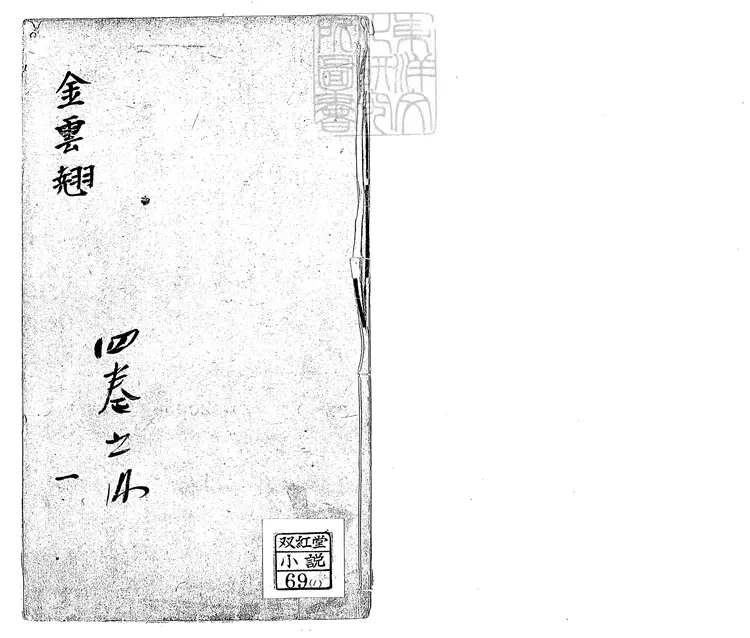 金雲翹
四巻之内
一
双紅堂
小説
69(1)
東洋文
化研究
所圖書